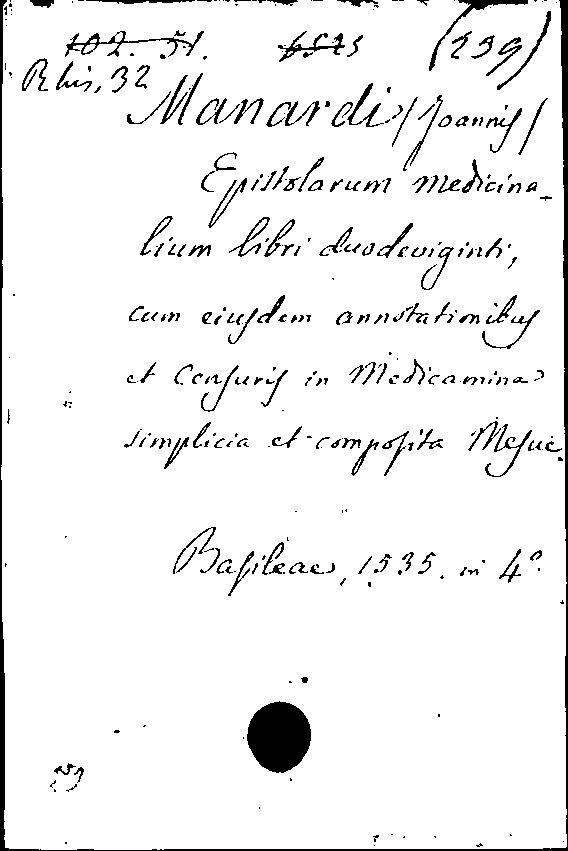 102. 51. 6525 (239)
R his, 32
Manardi (Joannis)
Epistolarum medicina-
lium libri duodeviginti,
cum eiusdem annotationibus
et Censuris in Medicamina
simplicia et composita Mesue.
Basileae, 1535. in 4°.